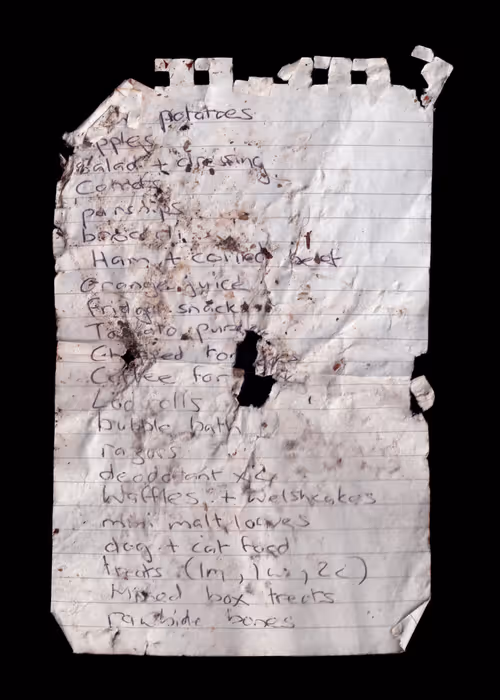 potatoes
pples
Salad + dressing
Carrots
parsnips
broccoli
Ham + corned beef
Orange juice
fridge snacks
Tomato puree
Chopped tom
Coffee for
Loo rolls
bubble bath
razors
deodorant x2
Waffles + welshcakes
mini malt loaves
dog + cat food
treats (1m, 1w, 2c)
Mixed box treats
rawhide bones